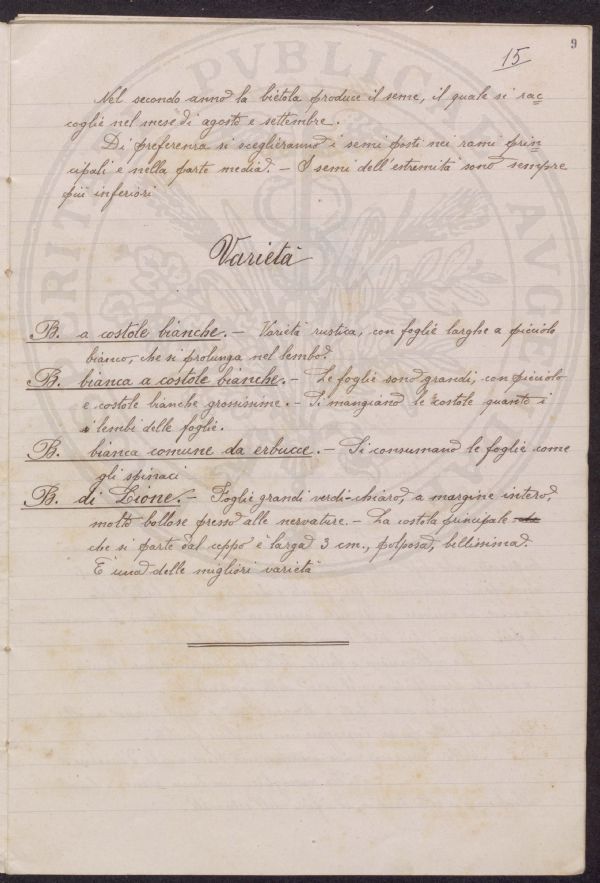 9
15
Nel secondo anno la bietola produce il seme, il quale si rac=
coglie nel mese di agosto e settembre.
Di preferenza si sceglieranno i semi posti nei rami prin=
cipali e nella parte media. - I semi dell'estremità sono sempre
più inferiori
Varietà
B. a costole bianche. - Varietà rustica, con foglie larghe a picciolo
bianco, che si prolunga nel lembo.
B. bianca a costole bianche. - Le foglie sono grandi, con picciolo
e costole bianche grossissime. - Si mangiano le costole quanto i
lembi delle foglie.
B. bianca comune da erbucce. - Si consumano le foglie come
gli spinaci
B. di Lione. - Foglie grandi verdi-chiaro, a margine intero,
molto bollose presso alle nervature. - La costola principale
che si parte dal ceppo è larga 3 cm., polposa, bellissima.
E' una delle migliori varietà
PVBLICAE
AVG